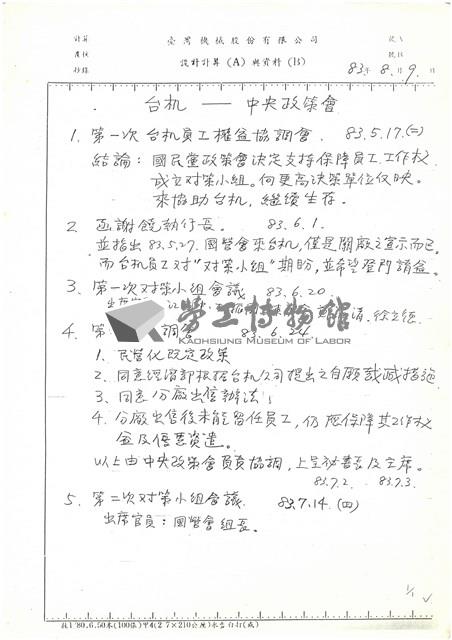 計算
臺灣機械股份有限公司
設計計算(A)與資料(B)
抄錄
83年8月9日
台机 —— 中央政策會
1. 第一次台机員工權益協調會. 83.5.17.(二)
結論：國民黨政策會決定支持保障員工工作权
成立对策小組。向更高決策單位反映。
來協助台机，繼續生存。
2. 函謝饒執行長. 83.6.1.
並指出83.5.27.國營會來台机，僅是關廠之宣示而已
而台机員工对"对策小組"期盼，並希望登門請益。
3. 第一次对策小組會議 83.6.20.
4. 第 調會 83.6.24
勞工博物館
KAOHSIUNG MUSEUM OF LABOR
1. 民營化既定政策
2. 同意經濟部根據台机公司提出之自願裁減措施
3. 同意分廠出售辦法；
4. 分廠出售後未能留任員工，仍應保障其工作权
益及優惠資遣。
以上由中央政策會負責協調，上呈秘書長及主席。
83.7.2. 83.7.3.
5. 第二次对策小組會議 83.7.14.(四)
出席官員：國營會組長。
1/1